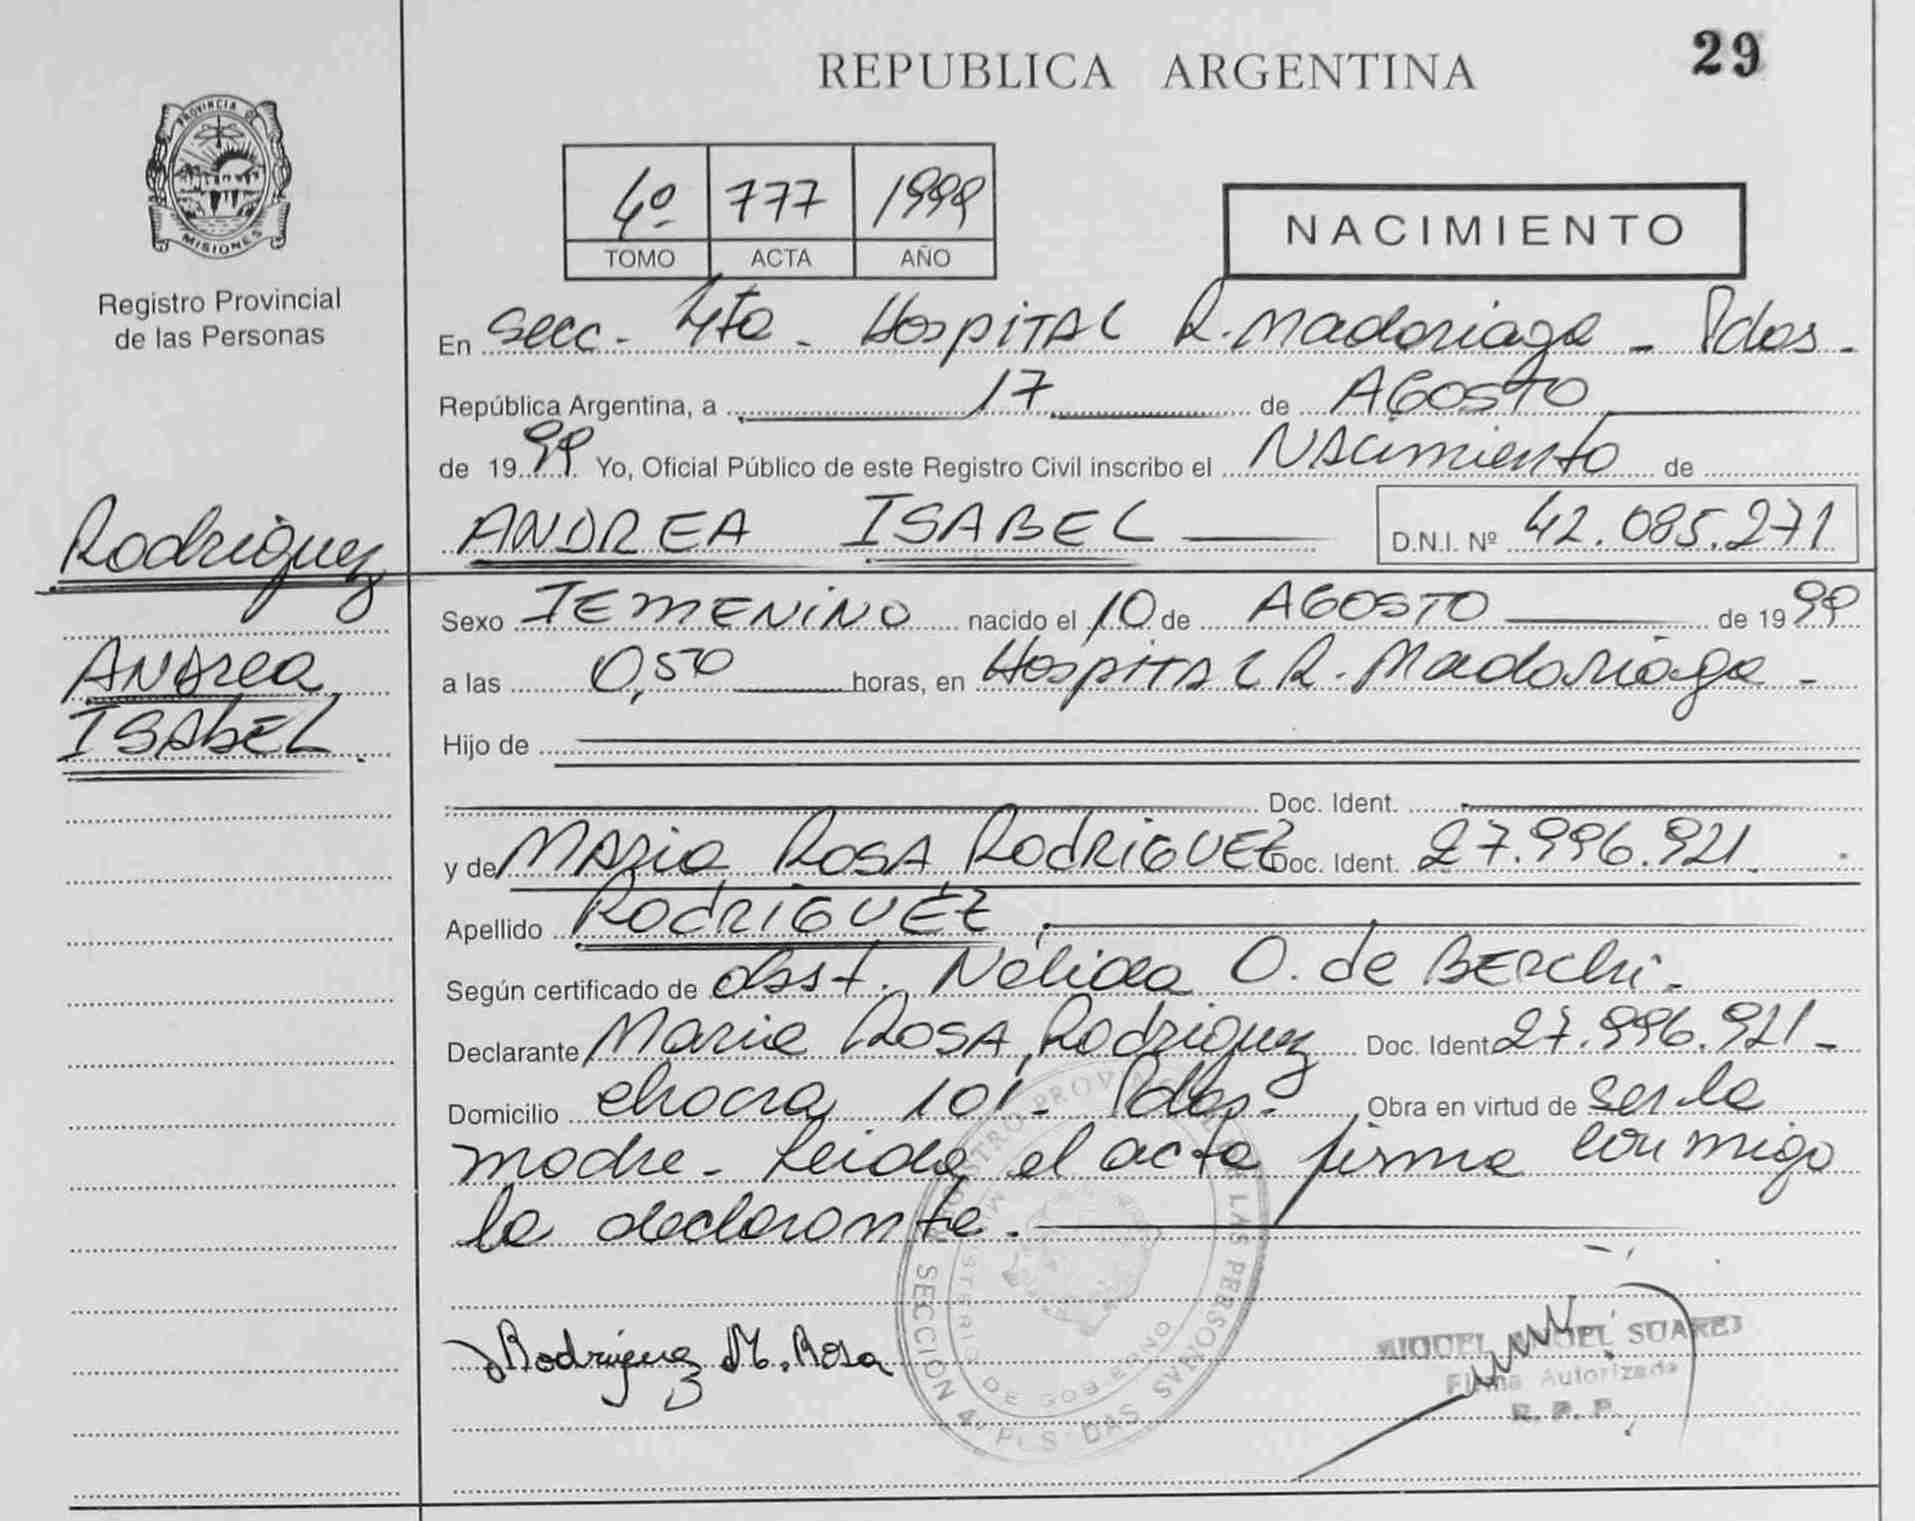 REPUBLICA ARGENTINA
29
PROVINCIA DE
MISIONES
Registro Provincial
de las Personas
4º 777 1999
TOMO ACTA AÑO
NACIMIENTO
En Secc. 4ta - Hospital R. Madariaga - Pdas -
República Argentina, a 17 de AGOSTO
de 1999 Yo, Oficial Público de este Registro Civil inscribo el Nacimiento de
ANDREA ISABEL D.N.I. Nº 42.085.271
Rodriguez
Andrea
ISAbEL
Sexo FEMENiNO nacido el 10 de AGOSTO de 1999
a las 0,50 horas, en Hospital R. Madariaga -
Hijo de
Doc. Ident.
y de Maria Rosa Rodriguez Doc. Ident. 27.996.921
Apellido RODRIGUEZ
Según certificado de obst. Nélida O. de Berchi -
Declarante Maria Rosa Rodriguez Doc. Ident 27.996.921 -
Domicilio chacra 101 - Pdas - Obra en virtud de ser la
madre - Leida el acta firma conmigo
la declarante.
Rodriguez M. Rosa
REGISTRO PROVINCIAL DE LAS PERSONAS
MINISTERIO DE GOBIERNO
SECCION 4º PDAS
MIGUEL ANGEL SUAREZ
Firma Autorizada
R. P. P.